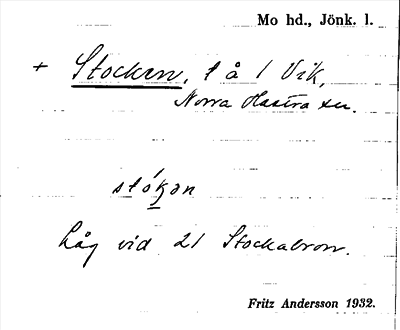 Mo hd., Jönk. l.
+ Stocken, l å / Vik,
Norra Hestra sn.
stókən
Låg vid 21 Stockabron.
Fritz Andersson 1932.